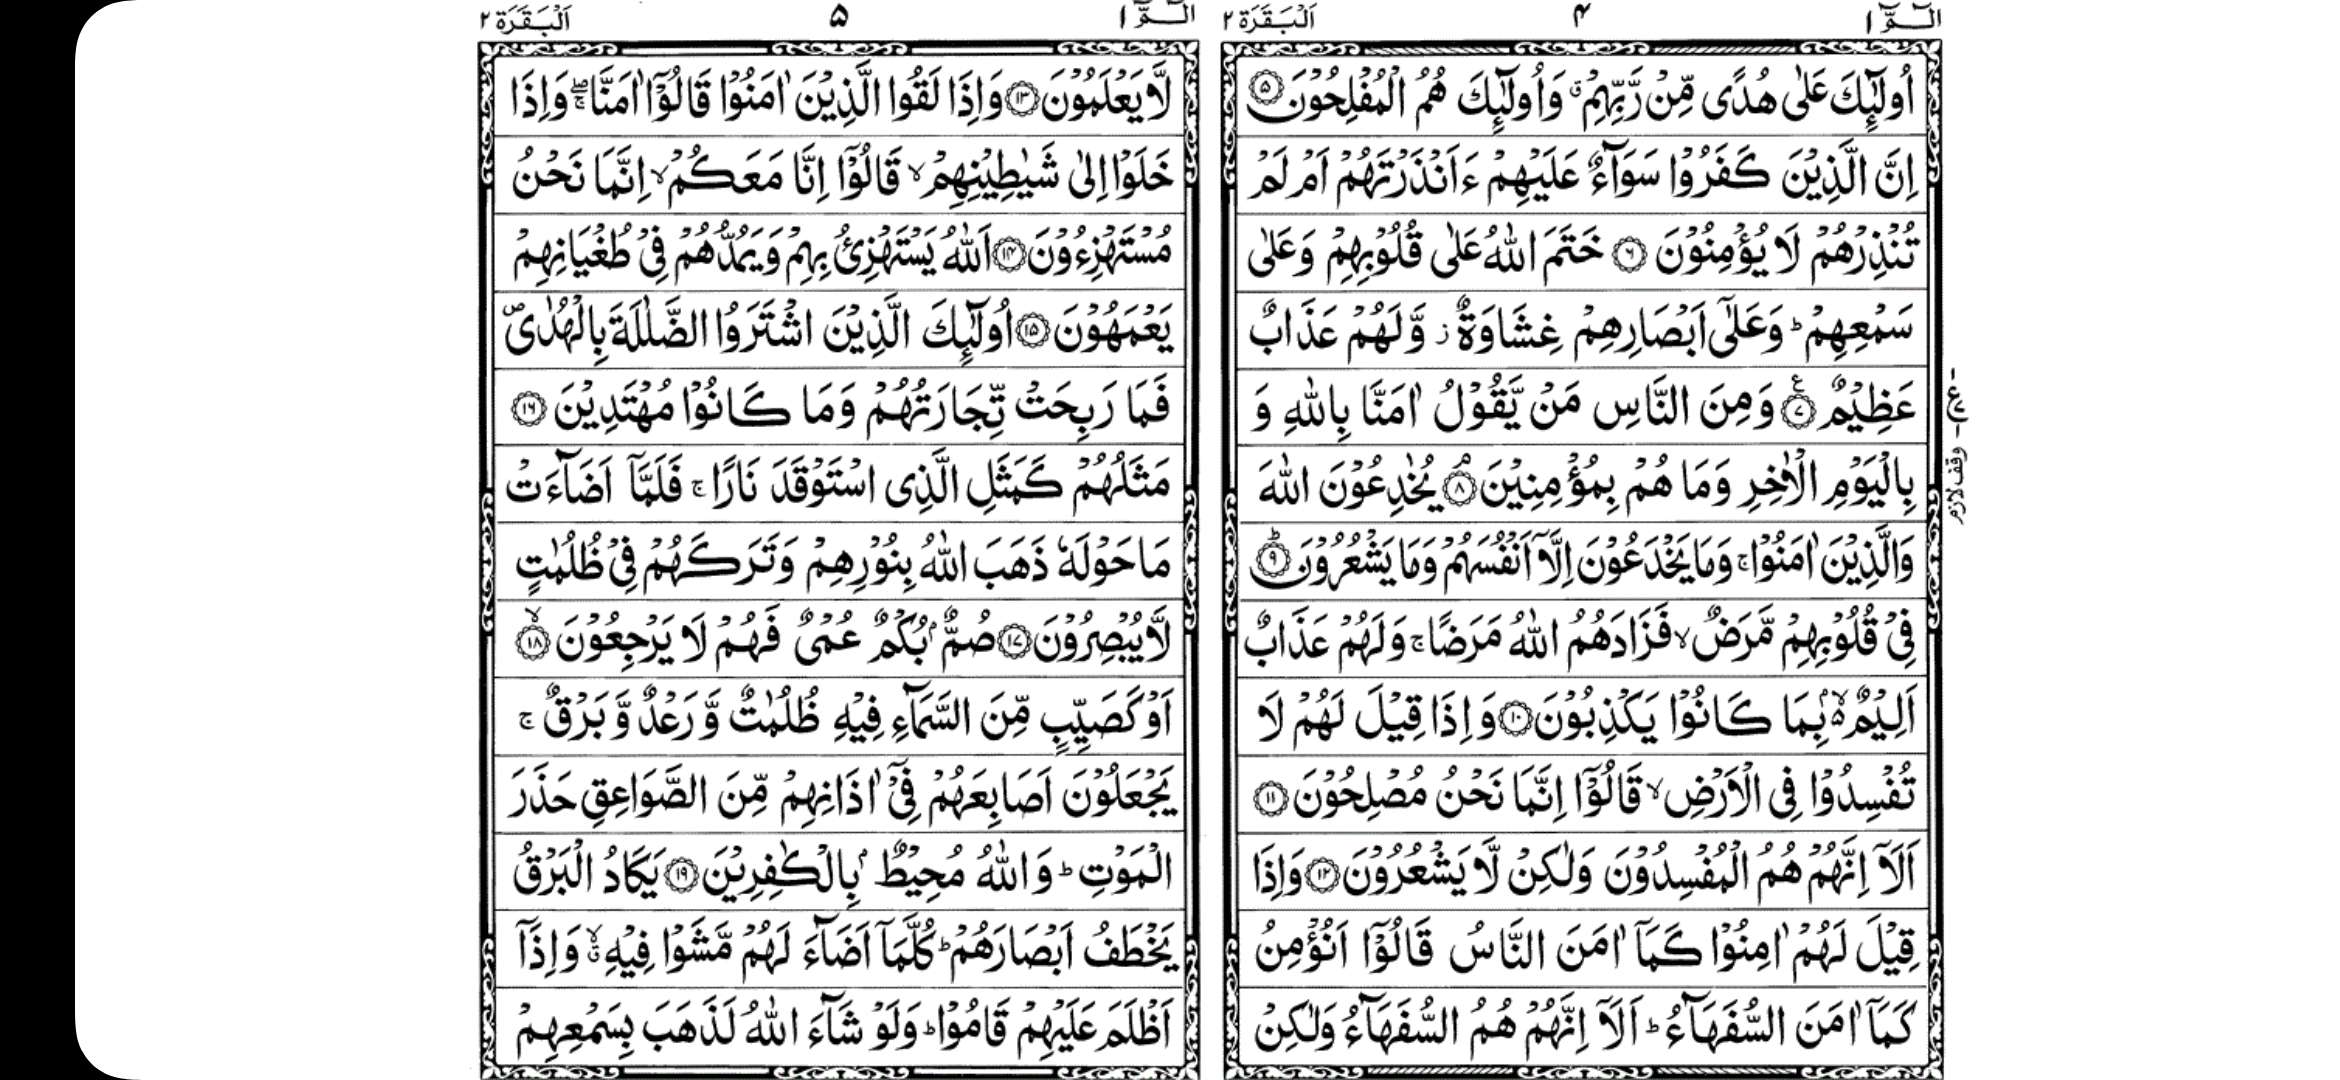 الٓمّٓ ١
۴
اَلْبَقَرَة ٢
اُولٰٓئِكَ عَلٰى هُدًى مِّنْ رَّبِّهِمْ ۗ وَاُولٰٓئِكَ هُمُ الْمُفْلِحُوْنَ ۝۵
اِنَّ الَّذِيْنَ كَفَرُوْا سَوَآءٌ عَلَيْهِمْ ءَاَنْذَرْتَهُمْ اَمْ لَمْ
تُنْذِرْهُمْ لَا يُؤْمِنُوْنَ ۝۶ خَتَمَ اللّٰهُ عَلٰى قُلُوْبِهِمْ وَعَلٰى
سَمْعِهِمْ ؕ وَعَلٰٓى اَبْصَارِهِمْ غِشَاوَةٌ ز وَّلَهُمْ عَذَابٌ
عَظِيْمٌ ۝۷ع وَمِنَ النَّاسِ مَنْ يَّقُوْلُ اٰمَنَّا بِاللّٰهِ وَ
بِالْيَوْمِ الْاٰخِرِ وَمَا هُمْ بِمُؤْمِنِيْنَ ۝۸ۘ يُخٰدِعُوْنَ اللّٰهَ
وَالَّذِيْنَ اٰمَنُوْا ۚ وَمَا يَخْدَعُوْنَ اِلَّآ اَنْفُسَهُمْ وَمَا يَشْعُرُوْنَ ۝۹ؕ
فِيْ قُلُوْبِهِمْ مَّرَضٌ ۙ فَزَادَهُمُ اللّٰهُ مَرَضًا ۚ وَلَهُمْ عَذَابٌ
اَلِيْمٌ ۙ۬ۢ بِمَا كَانُوْا يَكْذِبُوْنَ ۝۱۰ وَاِذَا قِيْلَ لَهُمْ لَا
تُفْسِدُوْا فِى الْاَرْضِ ۙ قَالُوْٓا اِنَّمَا نَحْنُ مُصْلِحُوْنَ ۝۱۱
اَلَآ اِنَّهُمْ هُمُ الْمُفْسِدُوْنَ وَلٰكِنْ لَّا يَشْعُرُوْنَ ۝۱۲ وَاِذَا
قِيْلَ لَهُمْ اٰمِنُوْا كَمَآ اٰمَنَ النَّاسُ قَالُوْٓا اَنُؤْمِنُ
كَمَآ اٰمَنَ السُّفَهَآءُ ؕ اَلَآ اِنَّهُمْ هُمُ السُّفَهَآءُ وَلٰكِنْ
وقف لازم
الٓمّٓ ١
۵
اَلْبَقَرَة ٢
لَّا يَعْلَمُوْنَ ۝۱۳ وَاِذَا لَقُوا الَّذِيْنَ اٰمَنُوْا قَالُوْٓا اٰمَنَّا ۖۚ وَاِذَا
خَلَوْا اِلٰى شَيٰطِيْنِهِمْ ۙ قَالُوْٓا اِنَّا مَعَكُمْ ۙ اِنَّمَا نَحْنُ
مُسْتَهْزِءُوْنَ ۝۱۴ اَللّٰهُ يَسْتَهْزِئُ بِهِمْ وَيَمُدُّهُمْ فِيْ طُغْيَانِهِمْ
يَعْمَهُوْنَ ۝۱۵ اُولٰٓئِكَ الَّذِيْنَ اشْتَرَوُا الضَّلٰلَةَ بِالْهُدٰى ۪
فَمَا رَبِحَتْ تِّجَارَتُهُمْ وَمَا كَانُوْا مُهْتَدِيْنَ ۝۱۶
مَثَلُهُمْ كَمَثَلِ الَّذِى اسْتَوْقَدَ نَارًا ۚ فَلَمَّآ اَضَآءَتْ
مَا حَوْلَهٗ ذَهَبَ اللّٰهُ بِنُوْرِهِمْ وَتَرَكَهُمْ فِيْ ظُلُمٰتٍ
لَّا يُبْصِرُوْنَ ۝۱۷ صُمٌّۢ بُكْمٌ عُمْىٌ فَهُمْ لَا يَرْجِعُوْنَ ۝۱۸ۙ
اَوْ كَصَيِّبٍ مِّنَ السَّمَآءِ فِيْهِ ظُلُمٰتٌ وَّرَعْدٌ وَّبَرْقٌ ۚ
يَجْعَلُوْنَ اَصَابِعَهُمْ فِيْٓ اٰذَانِهِمْ مِّنَ الصَّوَاعِقِ حَذَرَ
الْمَوْتِ ؕ وَاللّٰهُ مُحِيْطٌۢ بِالْكٰفِرِيْنَ ۝۱۹ يَكَادُ الْبَرْقُ
يَخْطَفُ اَبْصَارَهُمْ ؕ كُلَّمَآ اَضَآءَ لَهُمْ مَّشَوْا فِيْهِ ۙۗ وَاِذَآ
اَظْلَمَ عَلَيْهِمْ قَامُوْا ؕ وَلَوْ شَآءَ اللّٰهُ لَذَهَبَ بِسَمْعِهِمْ